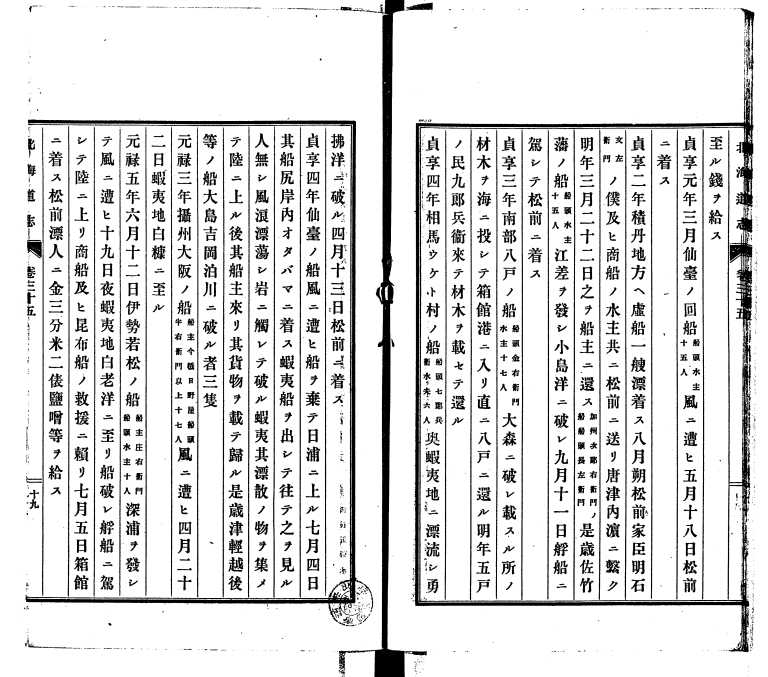 北海道志 卷三十五
至ル錢ヲ給ス
貞享元年三月仙臺ノ回船船頭水主十五人風ニ遭ヒ五月十八日松前
ニ着ス
貞享二年積丹地方ヘ虛船一艘漂着ス八月朔松前家臣明石
文左衞門ノ僕及ヒ商船ノ水主共ニ松前ニ送リ唐津內濵ニ繫ク
明年三月二十二日之ヲ船主ニ還ス加州次郞右衞門ノ船船頭長左衞門是歲佐竹
藩ノ船船頭水主十五人江差ヲ發シ小島洋ニ破レ九月十一日艀船ニ
駕シテ松前ニ着ス
貞享三年南部八戶ノ船船頭金右衞門水主十七人大森ニ破レ載スル所ノ
材木ヲ海ニ投シテ箱館港ニ入リ直ニ八戶ニ還ル明年五戶
ノ民九郞兵衞來テ材木ヲ載セテ還ル
貞享四年相馬ウケト村ノ船船頭七郞兵衞水夫六人奧蝦夷地ニ漂流シ勇
拂洋ニ破ル四月十三日松前ニ着ス
貞享四年仙臺ノ船風ニ遭ヒ船ヲ棄テ日浦ニ上ル七月四日
其船尻岸內オタバマニ着ス蝦夷船ヲ出シテ往テ之ヲ見ル
人無シ風浪漂蕩シ岩ニ觸レテ破ル蝦夷其漂散ノ物ヲ集メ
テ陸ニ上ル後其船主來リ其貨物ヲ載テ歸ル是歲津輕越後
等ノ船大島吉岡泊川ニ破ル者三隻
元祿三年攝州大阪ノ船船主今橋日野屋船頭牛右衞門以上十七人風ニ遭ヒ四月二十
二日蝦夷地白糠ニ至ル
元祿五年六月十二日伊勢若松ノ船船主庄右衞門船頭水主十人深浦ヲ發シ
テ風ニ遭ヒ十九日夜蝦夷地白老洋ニ至リ船破レ艀船ニ駕
シテ陸ニ上リ商船及ヒ昆布船ノ救援ニ賴リ七月五日箱館
ニ着ス松前漂人ニ金三分米二俵鹽噌等ヲ給ス
北海道志 卷三十五
十九